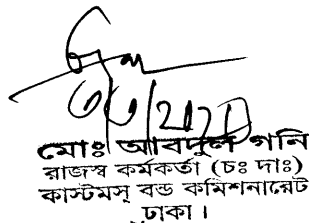 মোঃ আবদুল গনি
রাজস্ব কর্মকর্তা (চঃ দাঃ)
কাস্টমস্ বন্ড কমিশনারেট
ঢাকা।